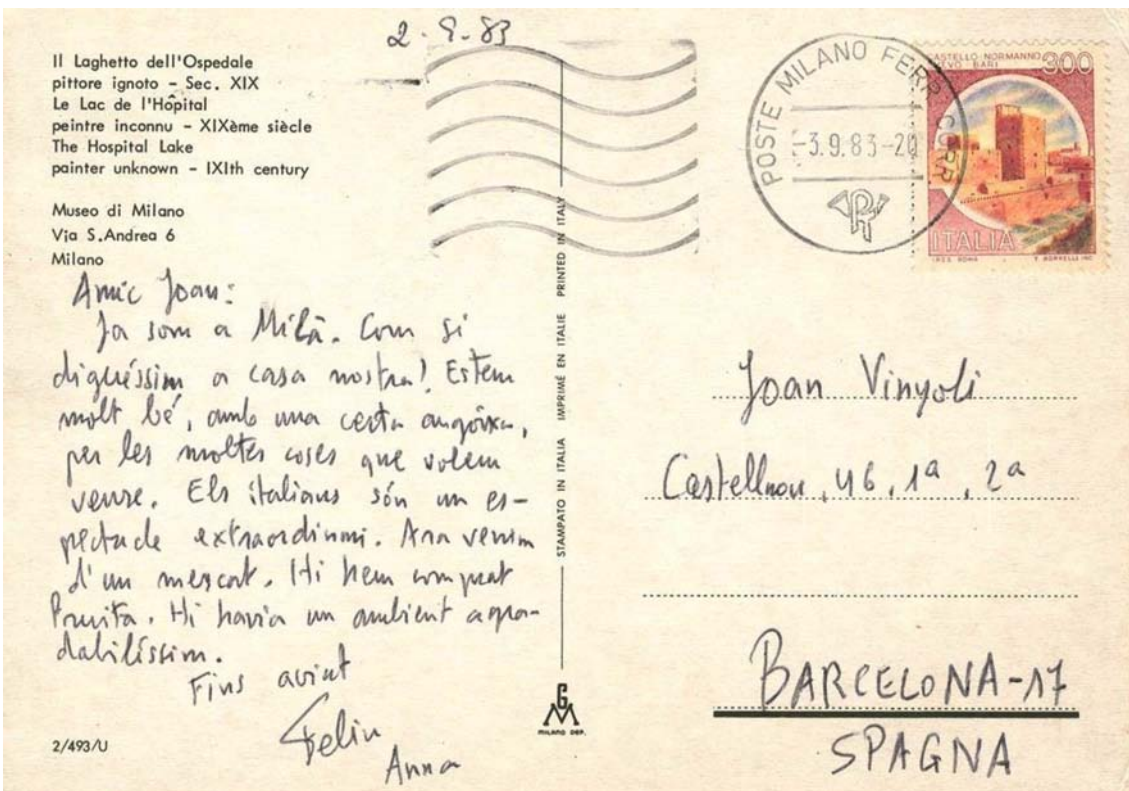 2-9-83
Il Laghetto dell'Ospedale
pittore ignoto - Sec. XIX
Le Lac de l'Hôpital
peintre inconnu - XIXème siècle
The Hospital Lake
painter unknown - IXIth century
Museo di Milano
Via S.Andrea 6
Milano
Amic Joan:
Ja som a Milà. Com si
diguéssim a casa nostra! Estem
molt bé, amb una certa angoixa,
per les moltes coses que volem
veure. Els italians són un es-
pectacle extraordinari. Ara venim
d'un mercat. Hi hem comprat
fruita. Hi havia un ambient agra-
dabilíssim.
Fins aviat
Feliu
Anna
2/493/U
STAMPATO IN ITALIA IMPRIMÉ EN ITALIE PRINTED IN ITALY
GM
MILANO DEP.
POSTE MILANO FERR. CORR
-3.9.83-20
CASTELLO NORMANNO
SVEVO BARI
300
ITALIA
I.P.Z.S. ROMA E. DONNINI INC.
Joan Vinyoli
Castellnou, 46, 1ª, 2ª
BARCELONA-17
SPAGNA